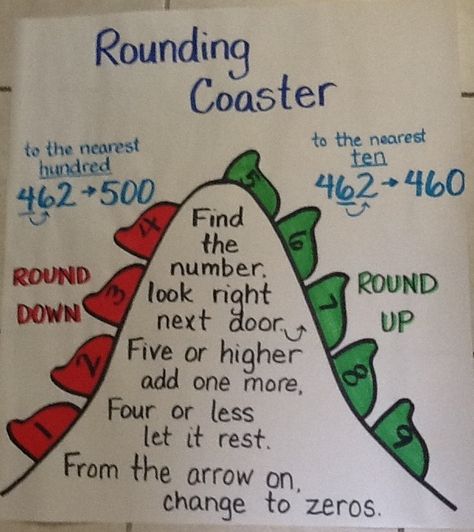 Rounding
Coaster
to the nearest
hundred
462→500
to the nearest
ten
462→460
ROUND
DOWN
1
2
3
4
5
6
7
8
9
ROUND
UP
Find
the
number.
look right
next door
Five or higher
add one more,
Four or less
let it rest.
From the arrow on,
change to zeros.